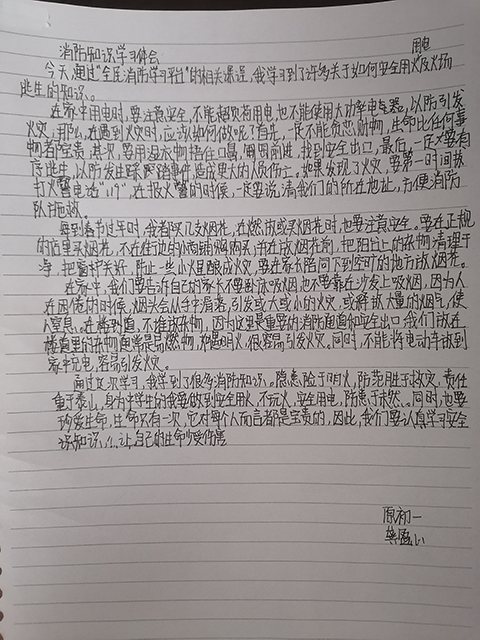 消防知识学习体会
用电
今天通过"全民消防学习平台"的相关课程,我学习到了许多关于如何安全用火及火场
逃生的知识。
在家中用电时,要注意安全,不能超负荷用电,也不能使用大功率电气器,以防引发
火灾,那么,在遇到火灾时,应该如何做呢?首先,一定不能贪恋财物,生命比任何事
物都宝贵,其次,要用湿衣物捂住口鼻,匍匐前进,找到安全出口,最后,一定要有
序逃生,以防发生踩踏事件造成更大的人员伤亡。如果发现了火灾,要第一时间拨
打火警电话"119",在报火警的时候,一定要说清我们的所在地址,方便消防
队
每到春节过年时,我都买几支烟花,在燃放或买烟花时,也要注意安全。要在正规
的店里买烟花,不在街边的小商铺购买;并在放烟花前,把阳台上的杂物清理干
净,把窗户关好,防止一些小火星酿成火灾,要在家长陪同下到空旷的地方放烟花。
在家中,我们要告诉自己的家长不要卧床吸烟,也不要靠在沙发上吸烟,因为人
在困倦的时候,烟头会从手中滑落,引发或大或小的火灾,或释放大量的烟气,使
人窒息。在楼道,不堆放杂物,因为这里是重要的消防通道和安全出口,我们放在
楼道里的杂物通常是易燃物,稍遇明火,很容易引发火灾。同时,不能将电动车放到
家中充电,容易引发火灾。
通过这次学习,我学到了很多消防知识。隐患险于明火,防范胜于救灾,责任
重于泰山,身为中学生的我要做到安全用火,不玩火,安全用电,防患于未然。同时,也要
珍爱生命,生命只有一次,它对每个人而言都是宝贵的,因此,我们要认真学习安全
知识,让自己的生命少受伤害
初一